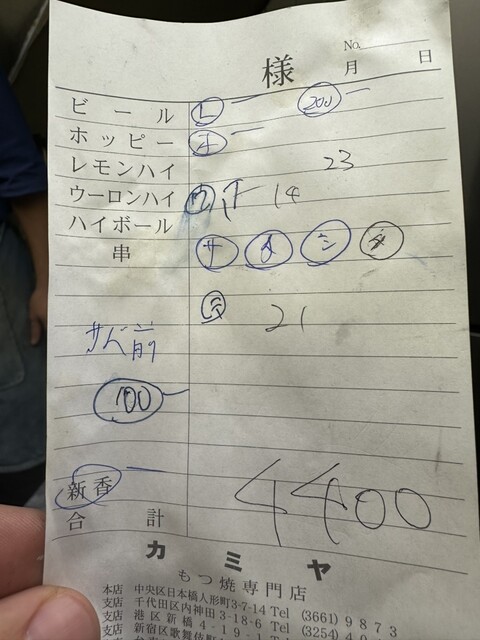 No.
様 月 日
ビール L 200
ホッピー
レモンハイ 23
ウーロンハイ ウ 14
ハイボール
串 サ タ シ
21
前
100
新香
合計 4400
カミヤ
もつ焼専門店
本店 中央区日本橋人形町3-7-14 Tel (3661) 9873
支店 千代田区内神田3-18-6 Tel (3254)
支店 港区新橋4-19-1
支店 新宿区歌舞伎町